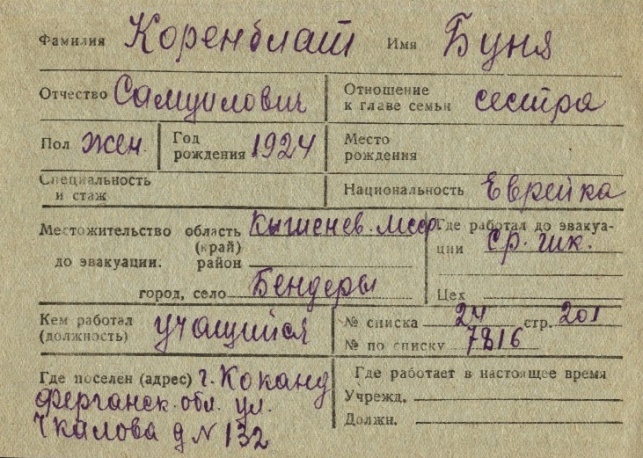 Фамилия Коренблат Имя Буня
Отчество Самуилович Отношение к главе семьи сестра
Пол жен. Год рождения 1924 Место рождения
Специальность и стаж Национальность Еврейка
Местожительство область (край) Кишенев. Мсср Где работал до эвакуации ср. шк.
до эвакуации: район
город, село Бендеры Цех
Кем работал (должность) учащийся № списка 24 стр. 201
№ по списку 7816
Где поселен (адрес) г. Коканд Где работает в настоящее время
Ферганск. обл. ул. Учрежд.
Чкалова д N 132 Должн.